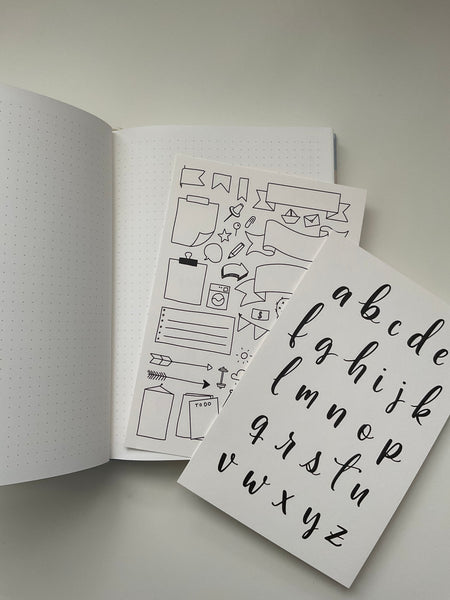 TO DO
$
a b c d e
f g h i j k
l m n o p
q r s t u
v w x y z